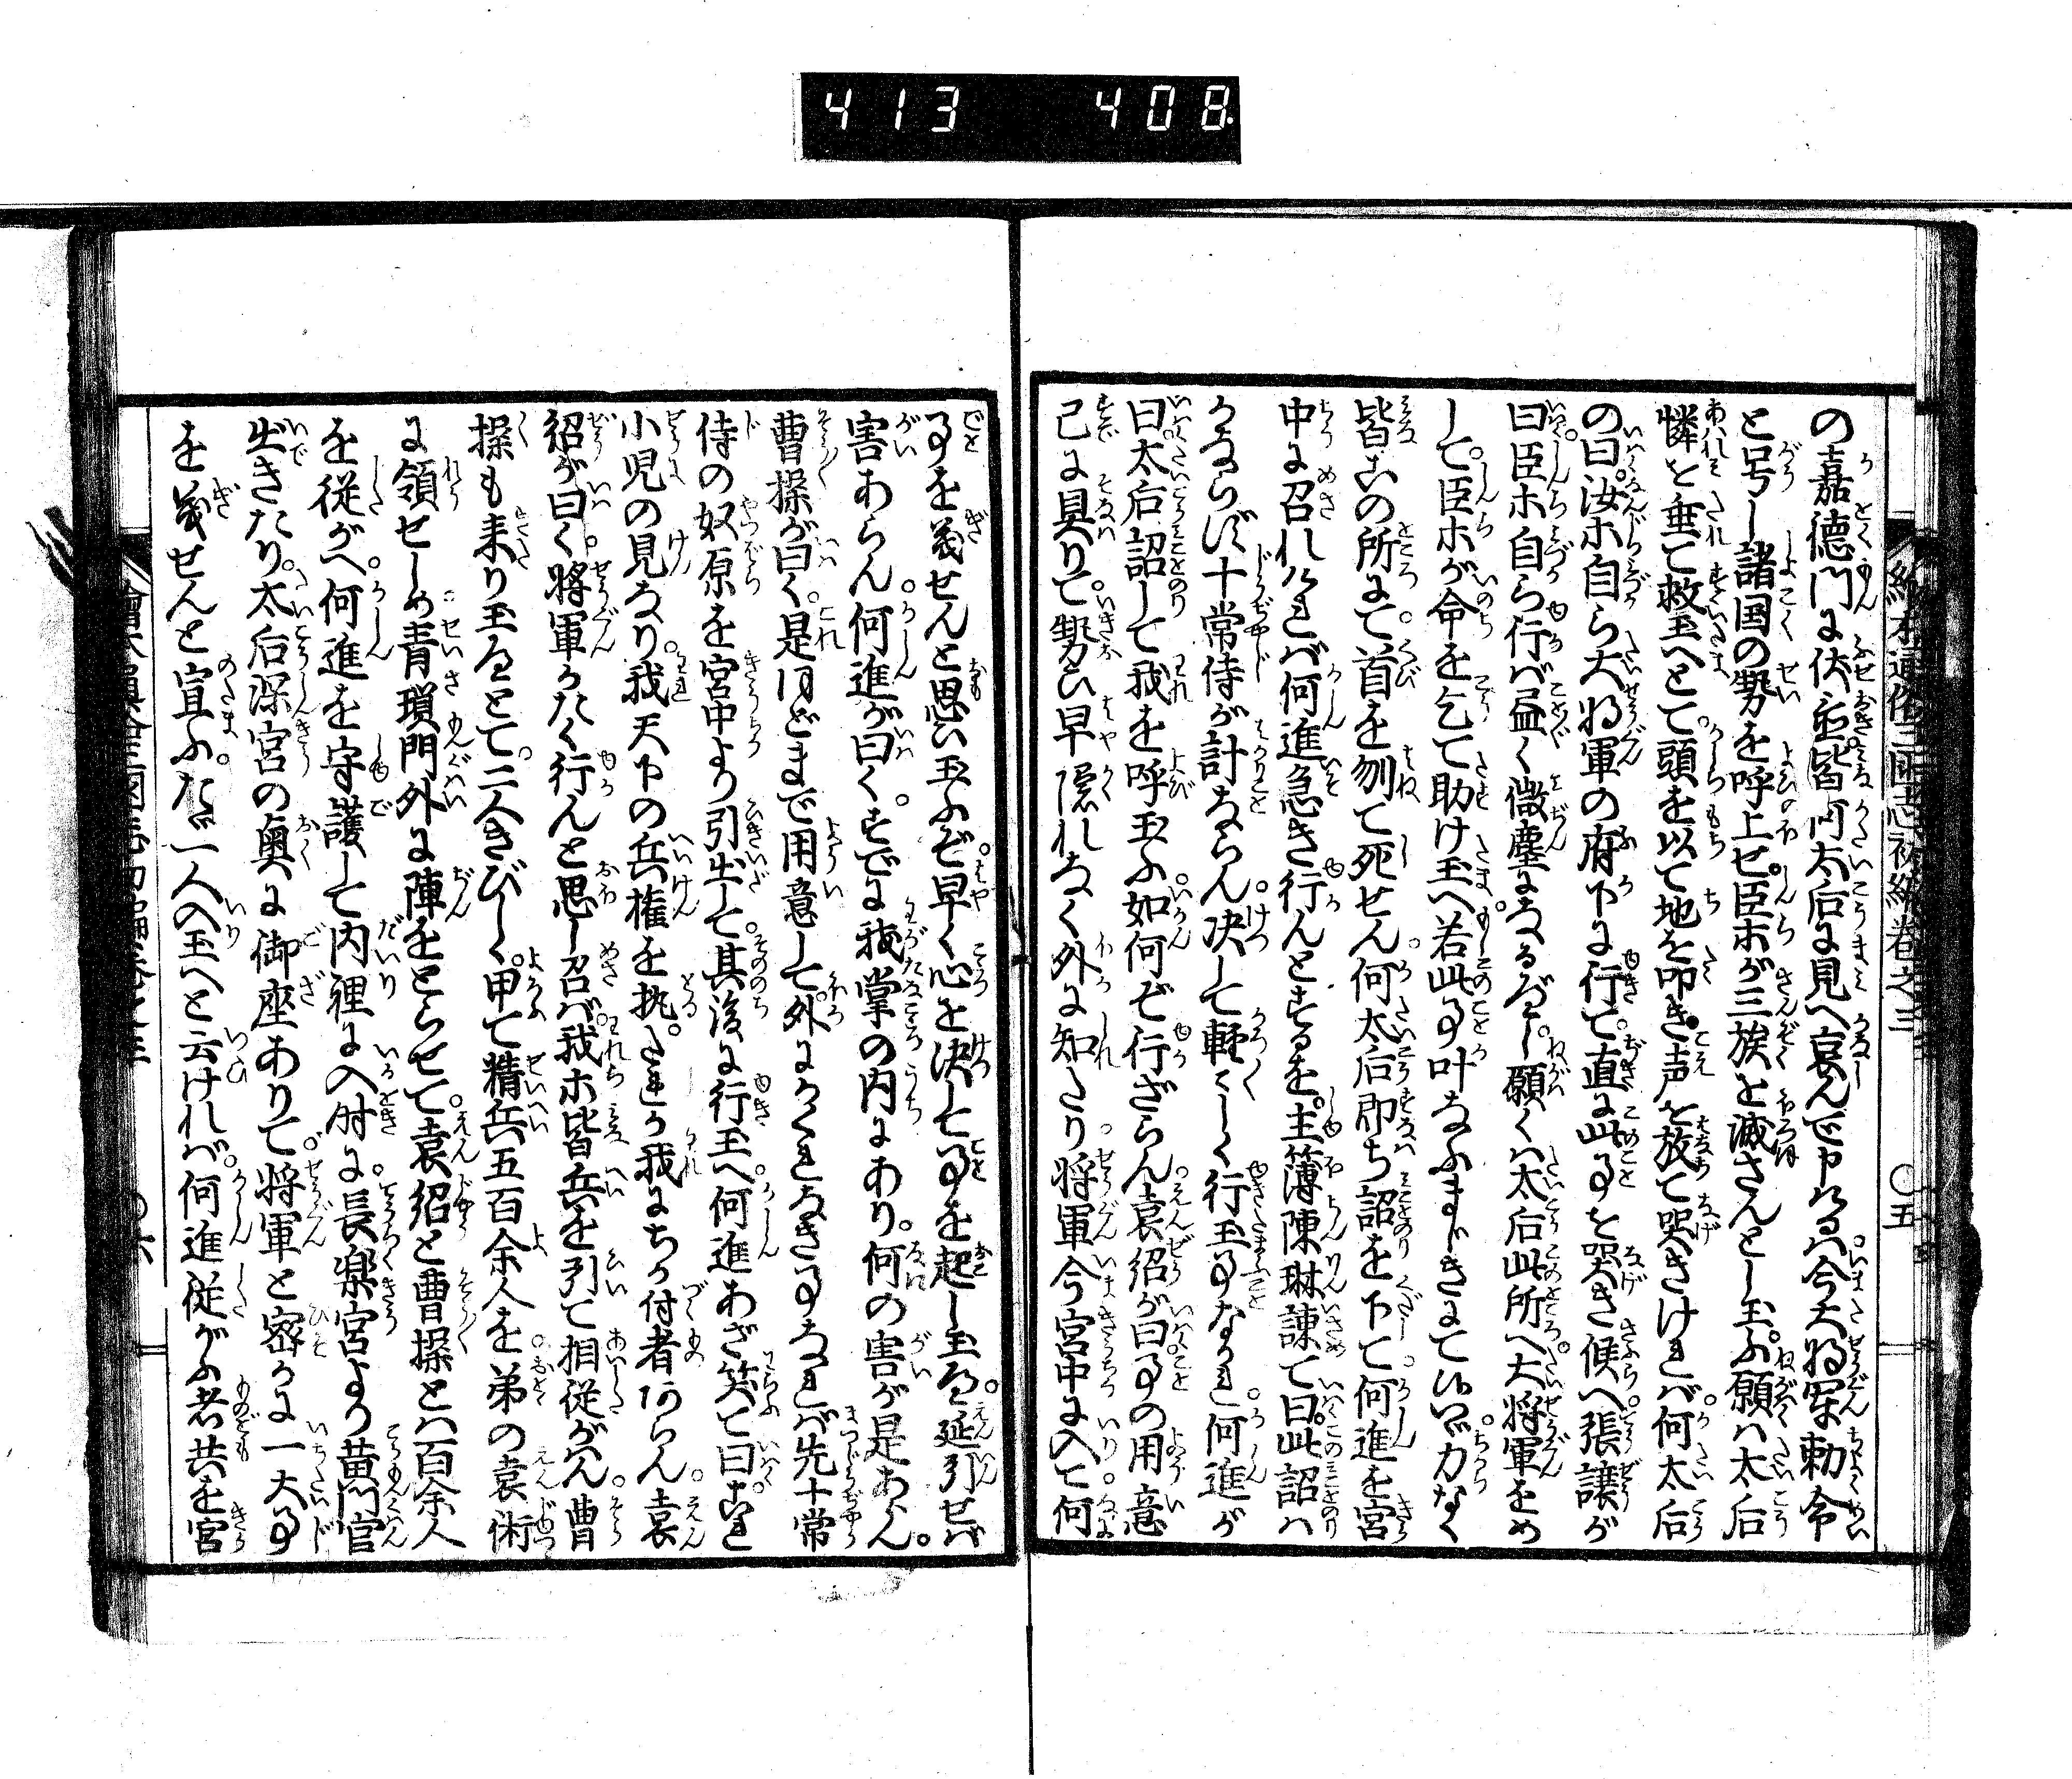 413 408
繪本通俗三國志初編卷之三 〇五
の嘉徳門に伏置皆何太后に見へ哀んで申けるハ今大将軍勅令
と号し諸国の勢を呼上せ臣ホが三族を滅さんとし玉ふ願ハ太后
憐を垂て救玉へとて頭を以て地を叩き声を放て哭きけれバ何太后
の曰汝ホ自ら大将軍の府下に行て直に此事を哭き候へ張譲が
曰臣ホ自ら行バ尽く微塵になるべし願くハ太后此所へ大将軍をめ
して臣ホが命を乞て助け玉へ若此事叶なふまじきにて候ハヾ力なく
皆此の所にて首を刎て死せん何太后即ち詔を下て何進を宮
中に召れけれバ何進急き行んとするを主簿陳琳諌て曰此詔ハ
かならず十常侍が計ならん决して軽〻しく行玉事なかれ何進が
曰太后詔して我を呼玉ふ如何ぞ行ざらん袁紹が曰事の用意
已に具りて勢ひ早隠れなく外に知たり将軍今宮中に入て何
事を議せんと思ひ玉ふぞ早く心を决して事を起し玉へ延引せバ
害あらん何進が曰くすでに我掌の内にあり何の害が是あらん
曹操が曰く是ほどまで用意して外にかくれなき事なれバ先十常
侍の奴原を宮中より引出して其後に行玉へ何進あざ笑て曰これ
小児の見なり我天下の兵権を執たれか我にちか付者あらん袁
紹が曰く将軍かたく行んと思し召バ我ホ皆兵を引て相従がん曹
操も来り玉へとて二人きびしく甲て精兵五百余人を弟の袁術
に領せしめ青瑣門外に陣をとらせて袁紹と曹操とハ百余人
を従がへ何進を守護して内裡に入時に長楽宮より黄門官
出きたり太后深宮の奥に御座ありて将軍と密かに一大事
を議せんと宣ふたゞ一人入玉へと云けれバ何進従がふ者共を宮
繪本通俗三國志初編卷之三 〇六